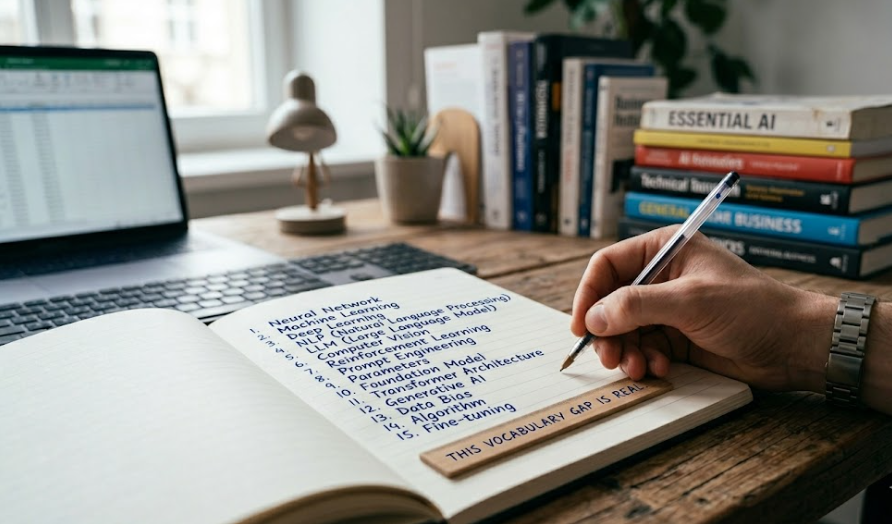 1. Neural Network
2. Machine Learning
3. Deep Learning
4. NLP (Natural Language Processing)
5. LLM (Large Language Model)
6. Computer Vision
7. Reinforcement Learning
8. Prompt Engineering
9. Parameters
10. Foundation Model
11. Transformer Architecture
12. Generative AI
13. Data Bias
14. Algorithm
15. Fine-tuning
THIS VOCABULARY GAP IS REAL
ESSENTIAL AI
Technical
BUSINESS